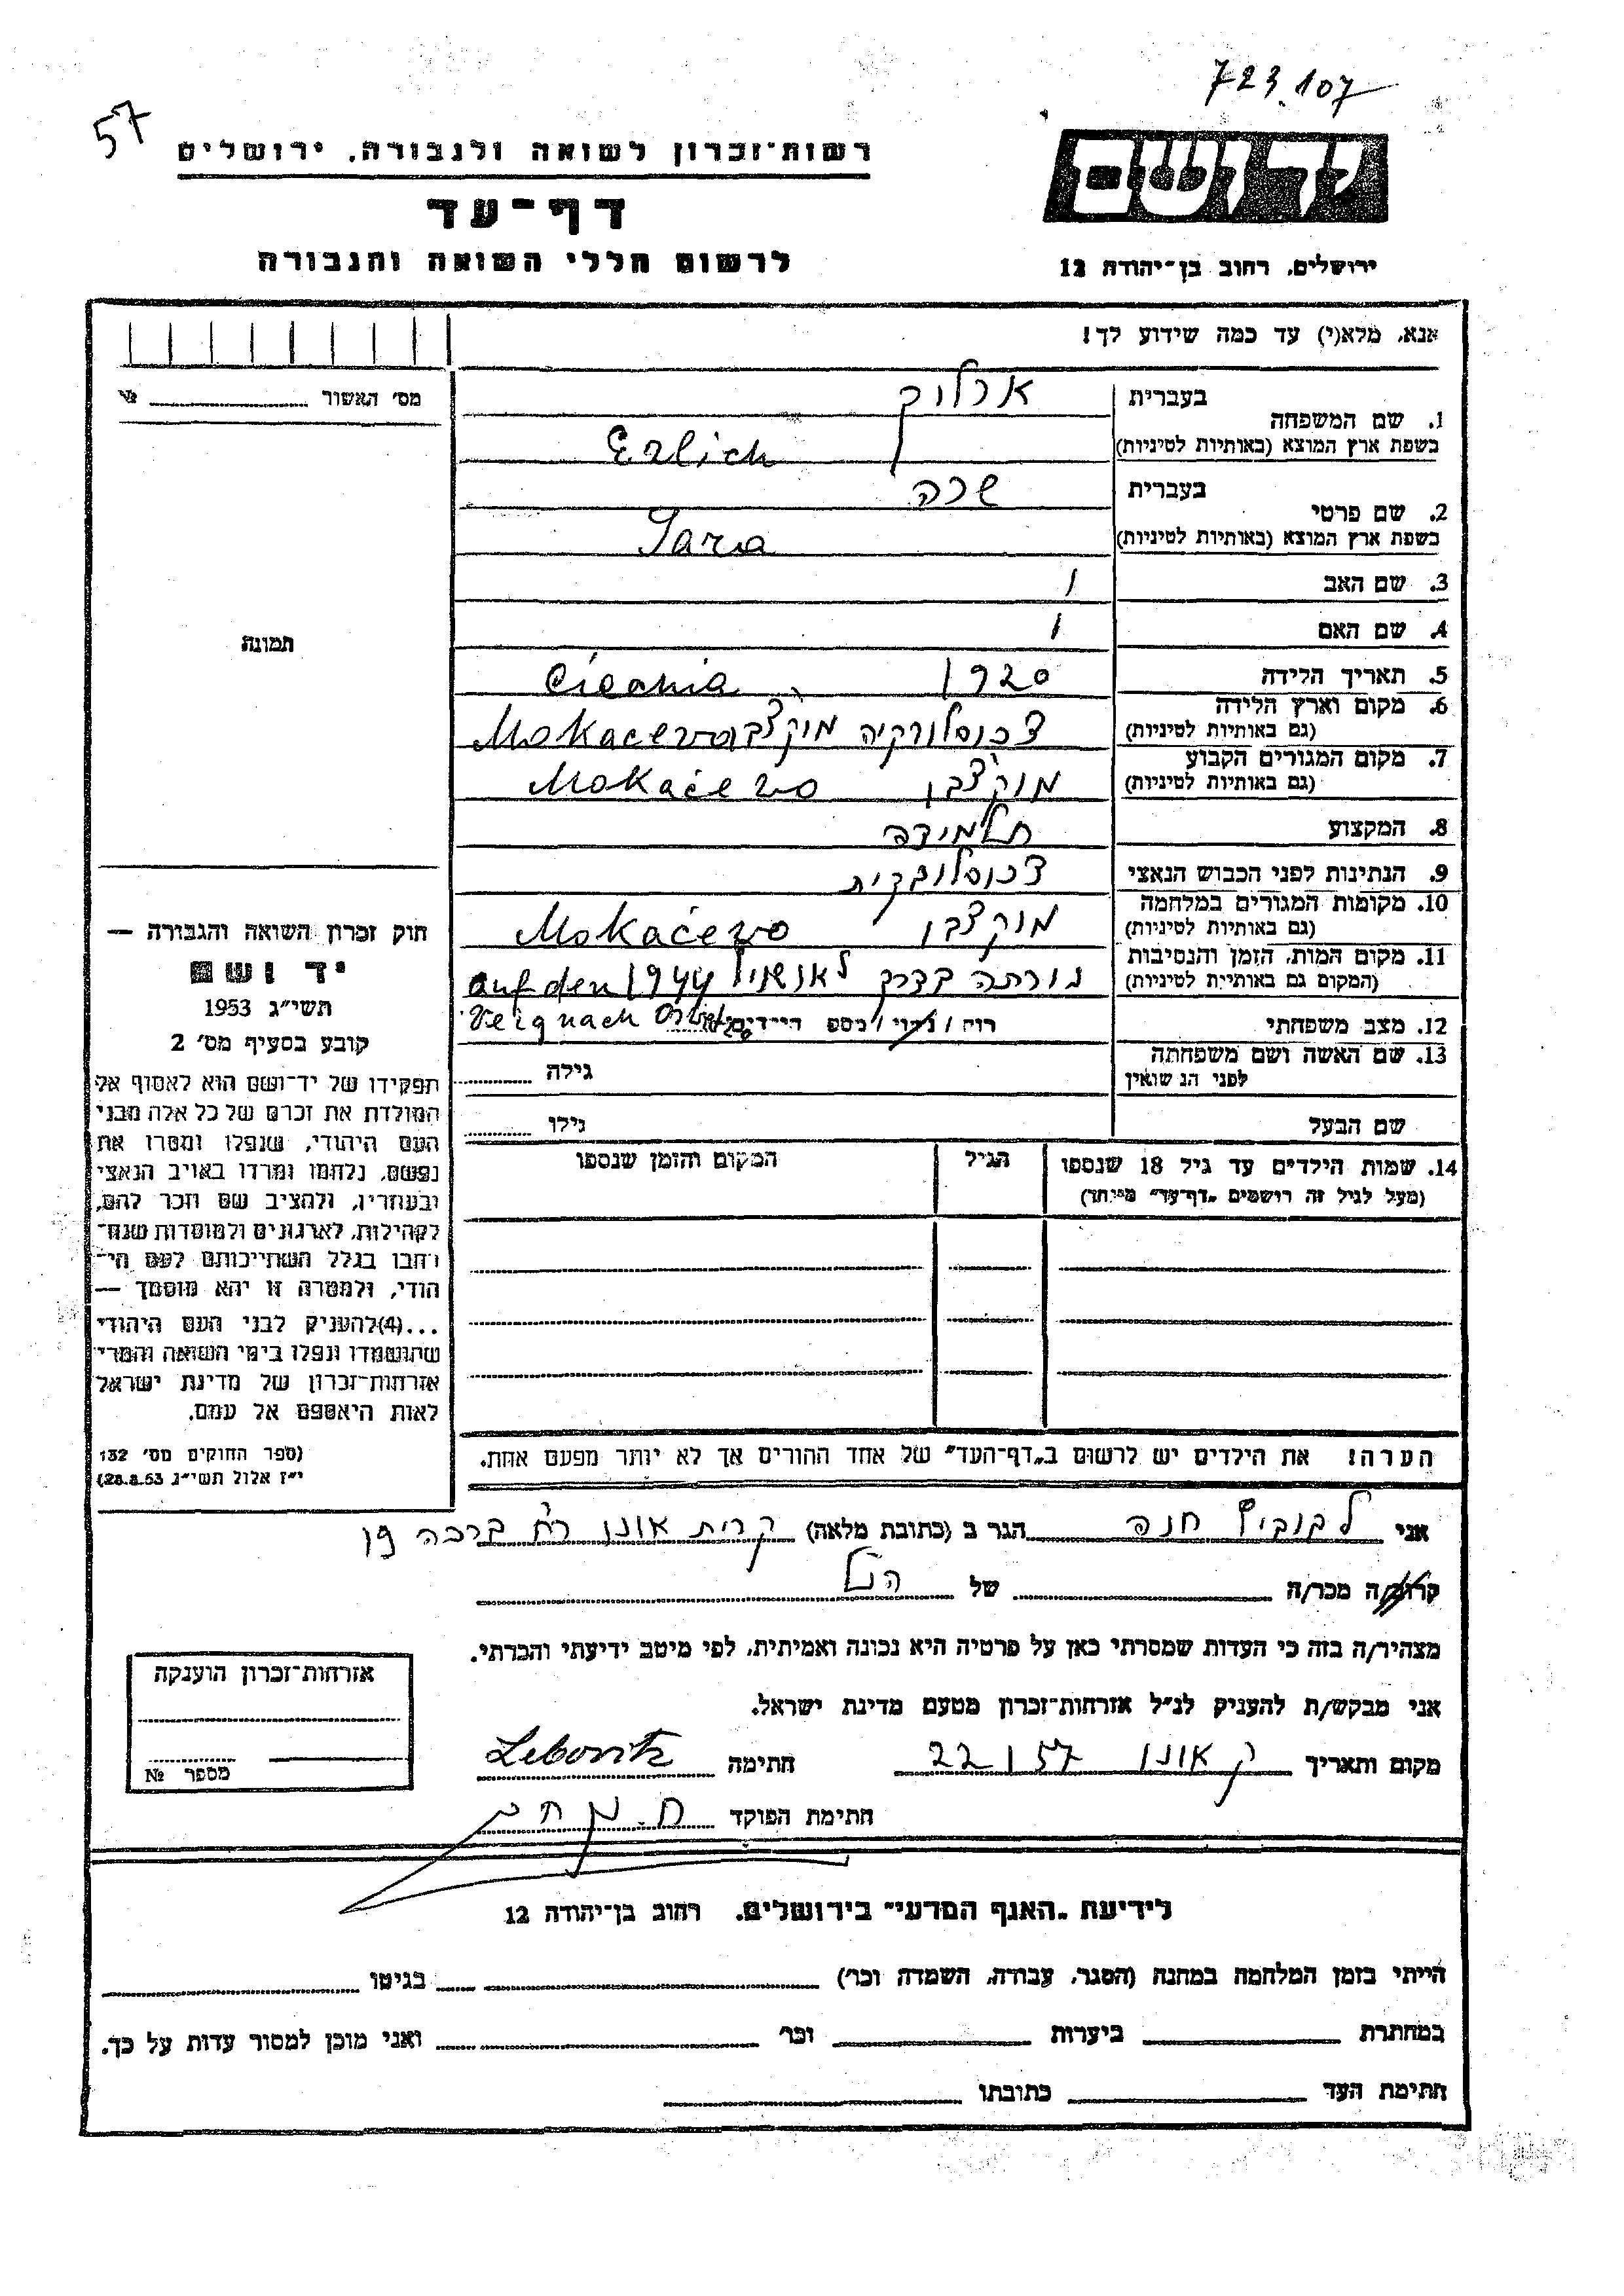 723107
57
רשות-זכרון לשואה ולגבורה, ירושלים
דף-עד
לרשום חללי השואה והגבורה
ידושם
ירושלים, רחוב בן-יהודה 12
אנא, מלא(י) עד כמה שידוע לך!
מס' האשור № 
1. שם המשפחה
בעברית
ארליך
בשפת ארץ המוצא (באותיות לטיניות)
Erlich
2. שם פרטי
בעברית
שרה
בשפת ארץ המוצא (באותיות לטיניות)
Sara
3. שם האב /
4. שם האם /
5. תאריך הלידה 1920
6. מקום וארץ הלידה
(גם באותיות לטיניות)
צכוסלובקיה Mokacevo
7. מקום המגורים הקבוע
(גם באותיות לטיניות)
Mokačevo
8. המקצוע תלמידה
9. הנתינות לפני הכבוש הנאצי צכוסלובקית
10. מקומות המגורים במלחמה
(גם באותיות לטיניות)
Mokačevo
11. מקום המות, הזמן והנסיבות
(המקום גם באותיות לטיניות)
נורתה בדרך 1944 auf den
nach
12. מצב משפחתי רוק/נשוי/מספר הילדים
13. שם האשה ושם משפחתה
לפני הנשואין
גילה
שם הבעל גילו
14. שמות הילדים עד גיל 18 שנספו
(מעל לגיל זה רושמים "דף-עד" מיוחד)
הגיל
המקום והזמן שנספו
הערה! את הילדים יש לרשום ב"דף-העד" של אחד ההורים אך לא יותר מפעם אחת.
תמונה
חוק זכרון השואה והגבורה —
יד ושם
תשי"ג 1953
קובע בסעיף מס' 2
תפקידו של יד-ושם הוא לאסוף אל
המולדת את זכרם של כל אלה מבני
העם היהודי, שנפלו ומסרו את
נפשם, נלחמו ומרדו באויב הנאצי
ובעוזריו, ולהציב שם וזכר להם,
לקהילות, לארגונים ולמוסדות שנח-
רחבו בגלל השתייכותם לעם הי-
הודי, ולמטרה זו יהא מוסמך —
...(4)להעניק לבני העם היהודי
שהושמדו ונפלו בימי השואה והמרי
אזרחות-זכרון של מדינת ישראל
לאות היאספם אל עמם.
(ספר החוקים מס' 132
י"ז אלול תשי"ג 28.8.53)
אני לבוביץ חנה הגר ב (כתובת מלאה) קרית אונו רח' ברכה 19
קרוב/ה מכר/ה של הנ"ל
מצהיר/ה בזה כי העדות שמסרתי כאן על פרטיה היא נכונה ואמיתית, לפי מיטב ידיעתי והכרתי.
אני מבקש/ת להעניק לנ"ל אזרחות-זכרון מטעם מדינת ישראל.
מקום ותאריך ק אונו 22 I 57 חתימה Lebovitz
חתימת הפוקד
אזרחות-זכרון הוענקה
מספר №
לידיעת "האגף המדעי" בירושלים, רחוב בן-יהודה 12
הייתי בזמן המלחמה במחנה (הסגר, עבודה, השמדה וכו') בגיטו
במחתרת ביערות וכו' ואני מוכן למסור עדות על כך.
חתימת העד כתובתו